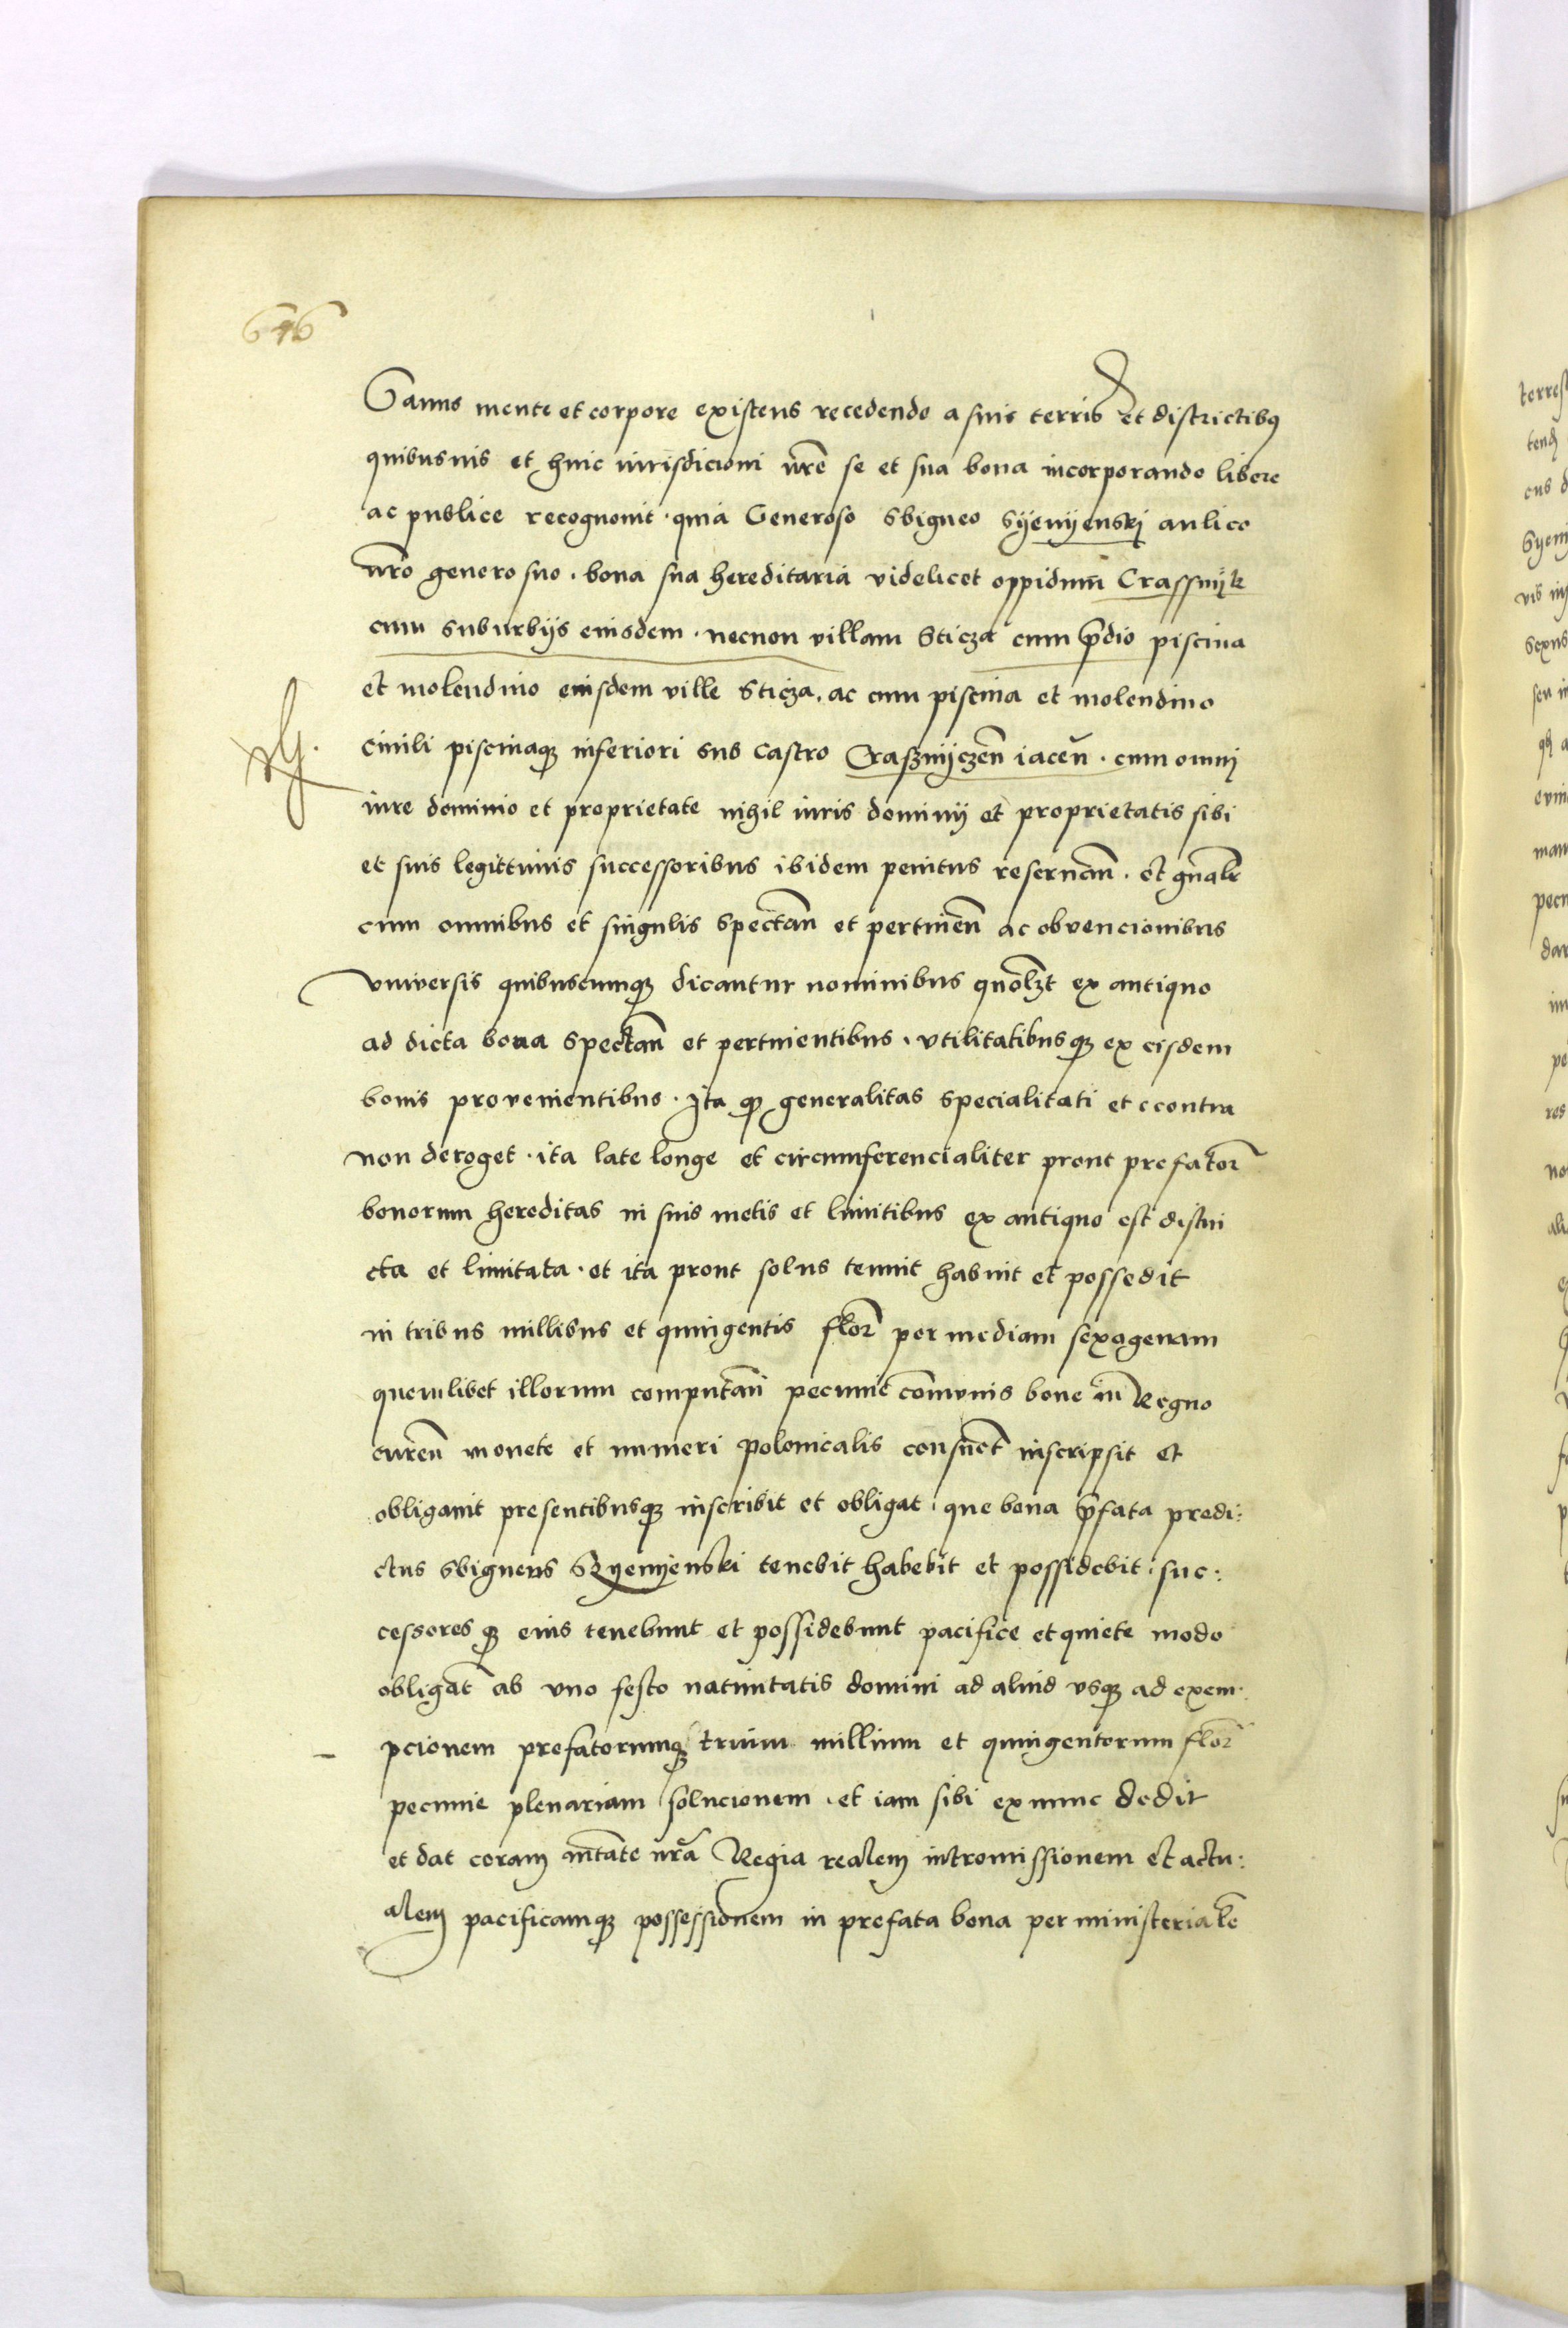 646
Sanus mente et corpore existens recedendo a suis terris et districtibus
quibusuis et huic iurisdicioni nre se et sua bona incorporando libere
ac publice recognouit · quia Generoso Sbigneo Syenyenskj aulico
nro genero suo · bona sua hereditaria videlicet oppidum Crassnyk
cum suburbijs eiusdem · necnon villam Sticza cum pdio piscina
et molendino eiusdem ville Sticza · ac cum piscina et molendino
ciuili piscinaque inferiori sub castro Crassnyczen iacen · cum omnj
iure dominio et proprietate nihil iuris dominij et proprietatis sibi
et suis legittimis successoribus ibidem penitus reseruan · et gnalr
cum omnibus et singulis spectan et pertinen ac obvencionibus
vniversis quibuscumque dicantur nominibus quolzt ex antiquo
ad dicta bona spectan et pertinentibus · vtilitatibusque ex eisdem
bonis provenientibus · Ita quod generalitas specialitati et econtra
non deroget · ita late longe et circumferencialiter prout prefator
bonorum hereditas in suis metis et limitibus ex antiquo est distin
cta et limitata · et ita prout solus tenuit habuit et possedit
in tribus millibus et quingentis flor per mediam sexagenam
quemlibet illorum computan pecunie comunis bone in Regno
curren monete et numeri polonicalis consuet inscripsit et
obligauit presentibusque inscribit et obligat · que bona pfata predi:
ctus Sbigneus Syenyenski tenebit habebit et possidebit · suc:
cessores que eius tenebunt et possidebunt pacifice et quiete modo
obligat ab vno festo natiuitatis domini ad aliud vsque ad exem:
pcionem prefatorumque trium millium et quingentorum flor
pecunie plenariam solucionem · et iam sibi ex nunc dedit
et dat coram mtate nra Regia realem intromissionem et actu:
alem pacificamque possessionem in prefata bona per ministeriale